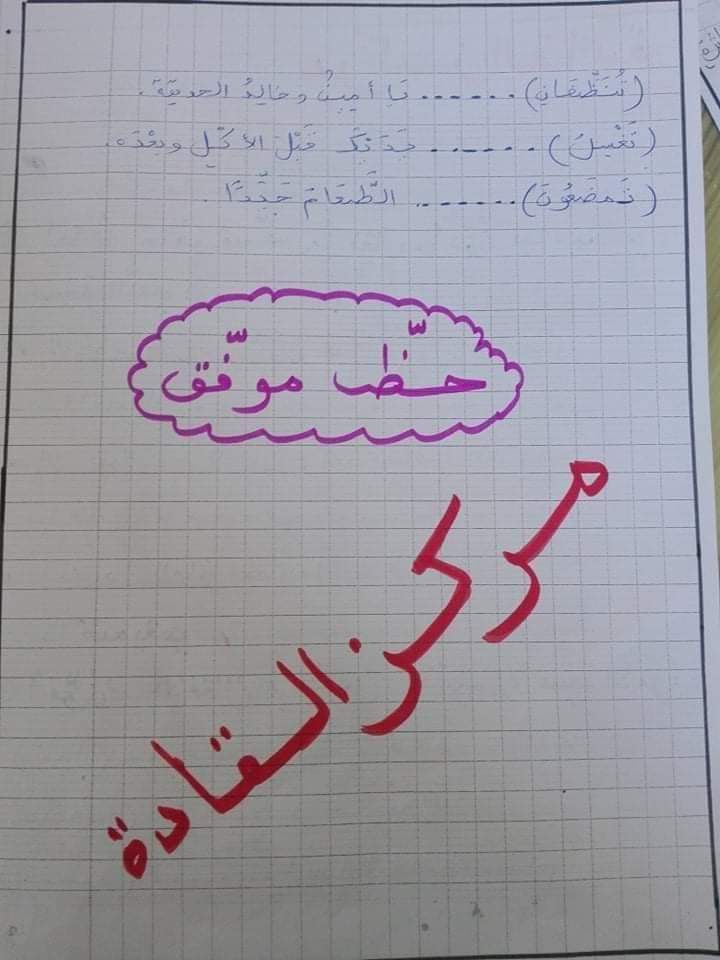 (تُنَظِّفَانِ)...... يَا أمِينُ وخَالِدُ الحديقةَ.
(تَغْسِلُ)...... يَدَيْكَ قَبْلَ الأكْلِ وبعْدَه.
(تَمضَغُونَ)...... الطَّعَامَ جَيِّدًا.
حظّ موفّق
مركز القادة